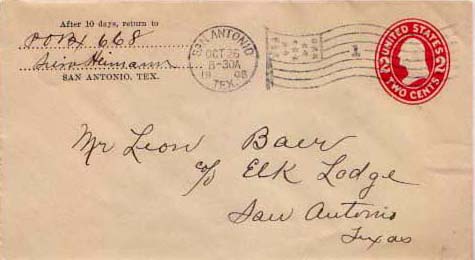 After 10 days, return to
P O Box 668
Heimann
SAN ANTONIO, TEX.
SAN ANTONIO
OCT 26
8-30A
1908
TEX.
1
UNITED STATES
2 2
TWO CENTS
Mr Leon Baer
c/o Elk Lodge
San Antonio
Texas